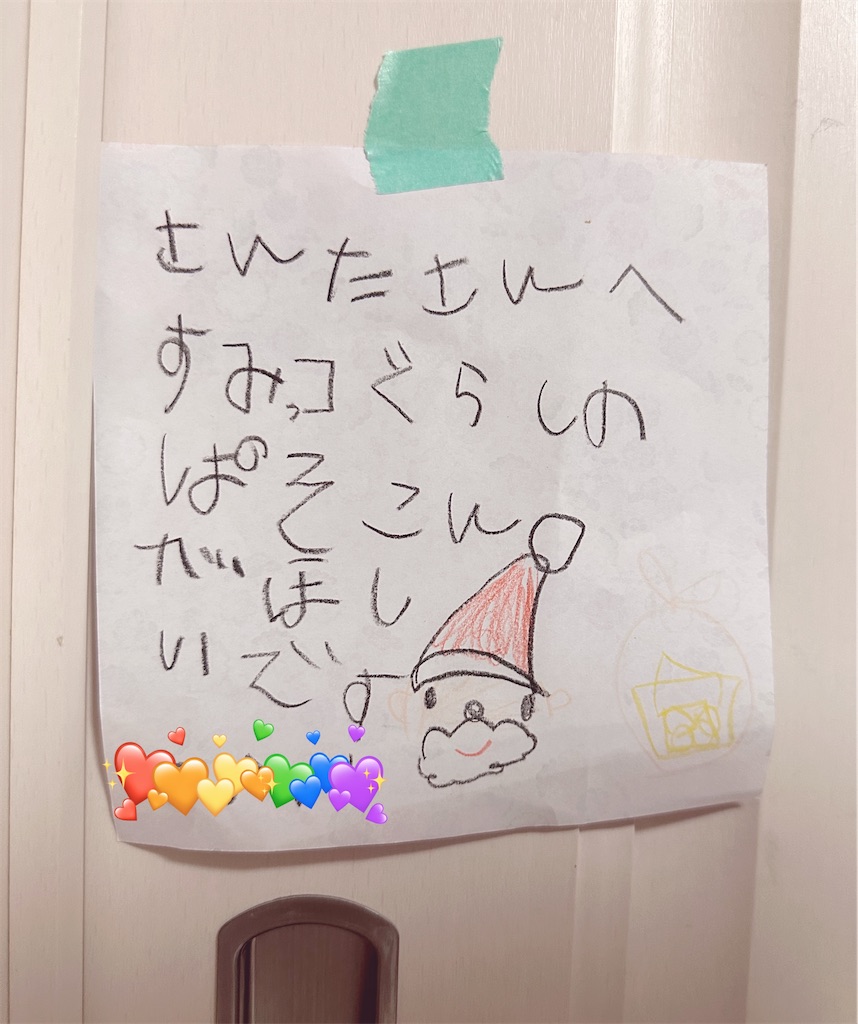 さんたさんへ
すみっコぐらしの
ぱそこん
がほし
いです